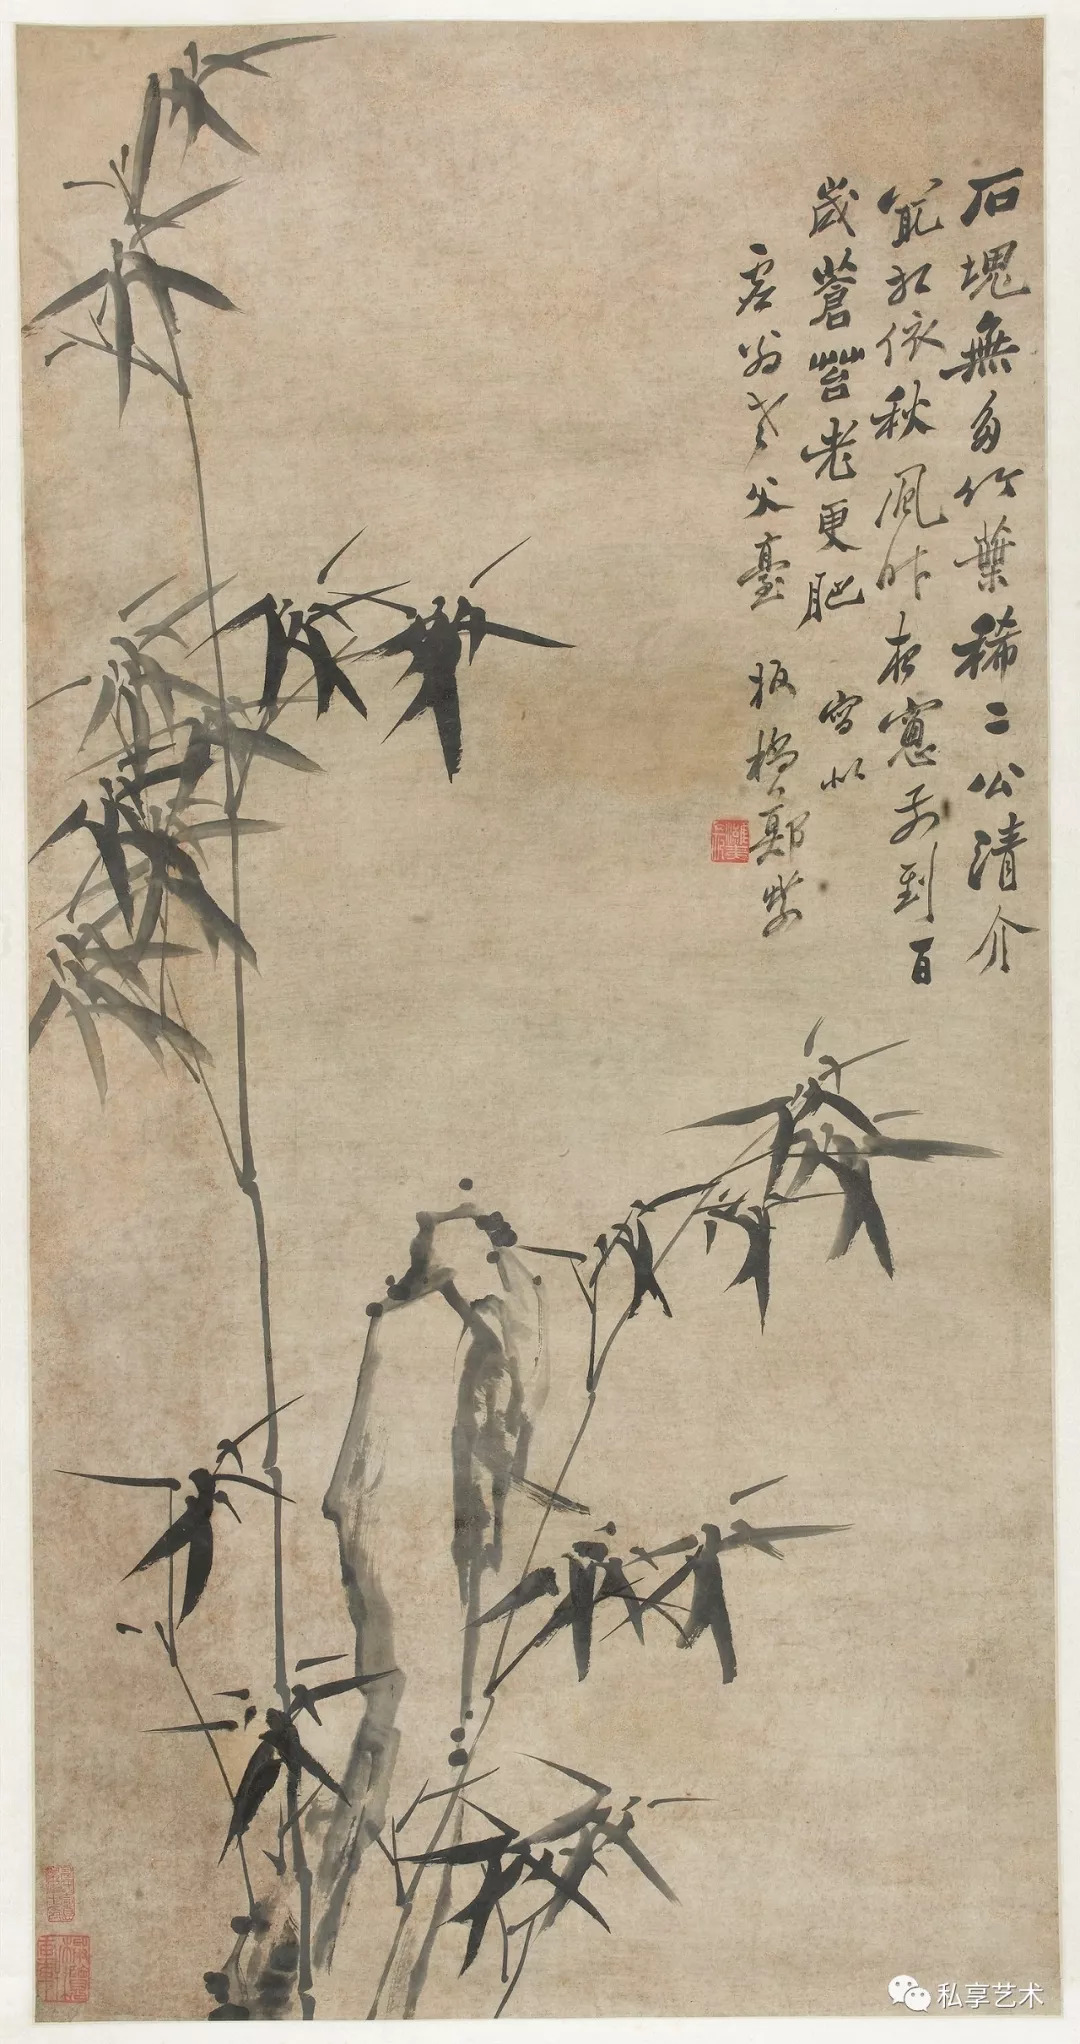 石塊無多竹葉稀二公清介
能相依秋風昨夜窓前到百
歲蒼苔老更肥 寫似
老父臺 板橋鄭燮
私享艺术